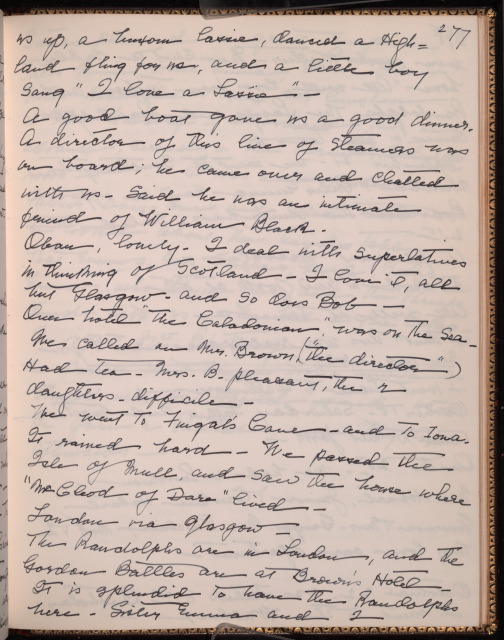 277
us up, a buxom lassie, danced a High=
land fling for us, and a little boy
Sang "I love a Lassie" -
A good boat gave us a good dinner.
A director of this line of Steamers was
on board; he came over and chatted
with us - Said he was an intimate
friend of William Black.
Oban, lovely - I deal with Superlatives
in thinking of Scotland - I love it, all
but Glasgow - and so does Bob -
Our hotel "the Caladonian", was on the Sea -
We called on Mrs. Brown ("the director")
Had tea - Mrs. B. pleasant, the 2
daughters - difficile -
We went to Fingal's Cave - and to Iona.
It rained hard - We passed the
Isle of Mull, and saw the house where
"McCleod of Dare" lived -
London via Glasgow -
The Randolphs are in London, and the
Gordon Battles are at Brown's Hotel -
It is splendid to have the Randolphs
here - Sister Emma and I